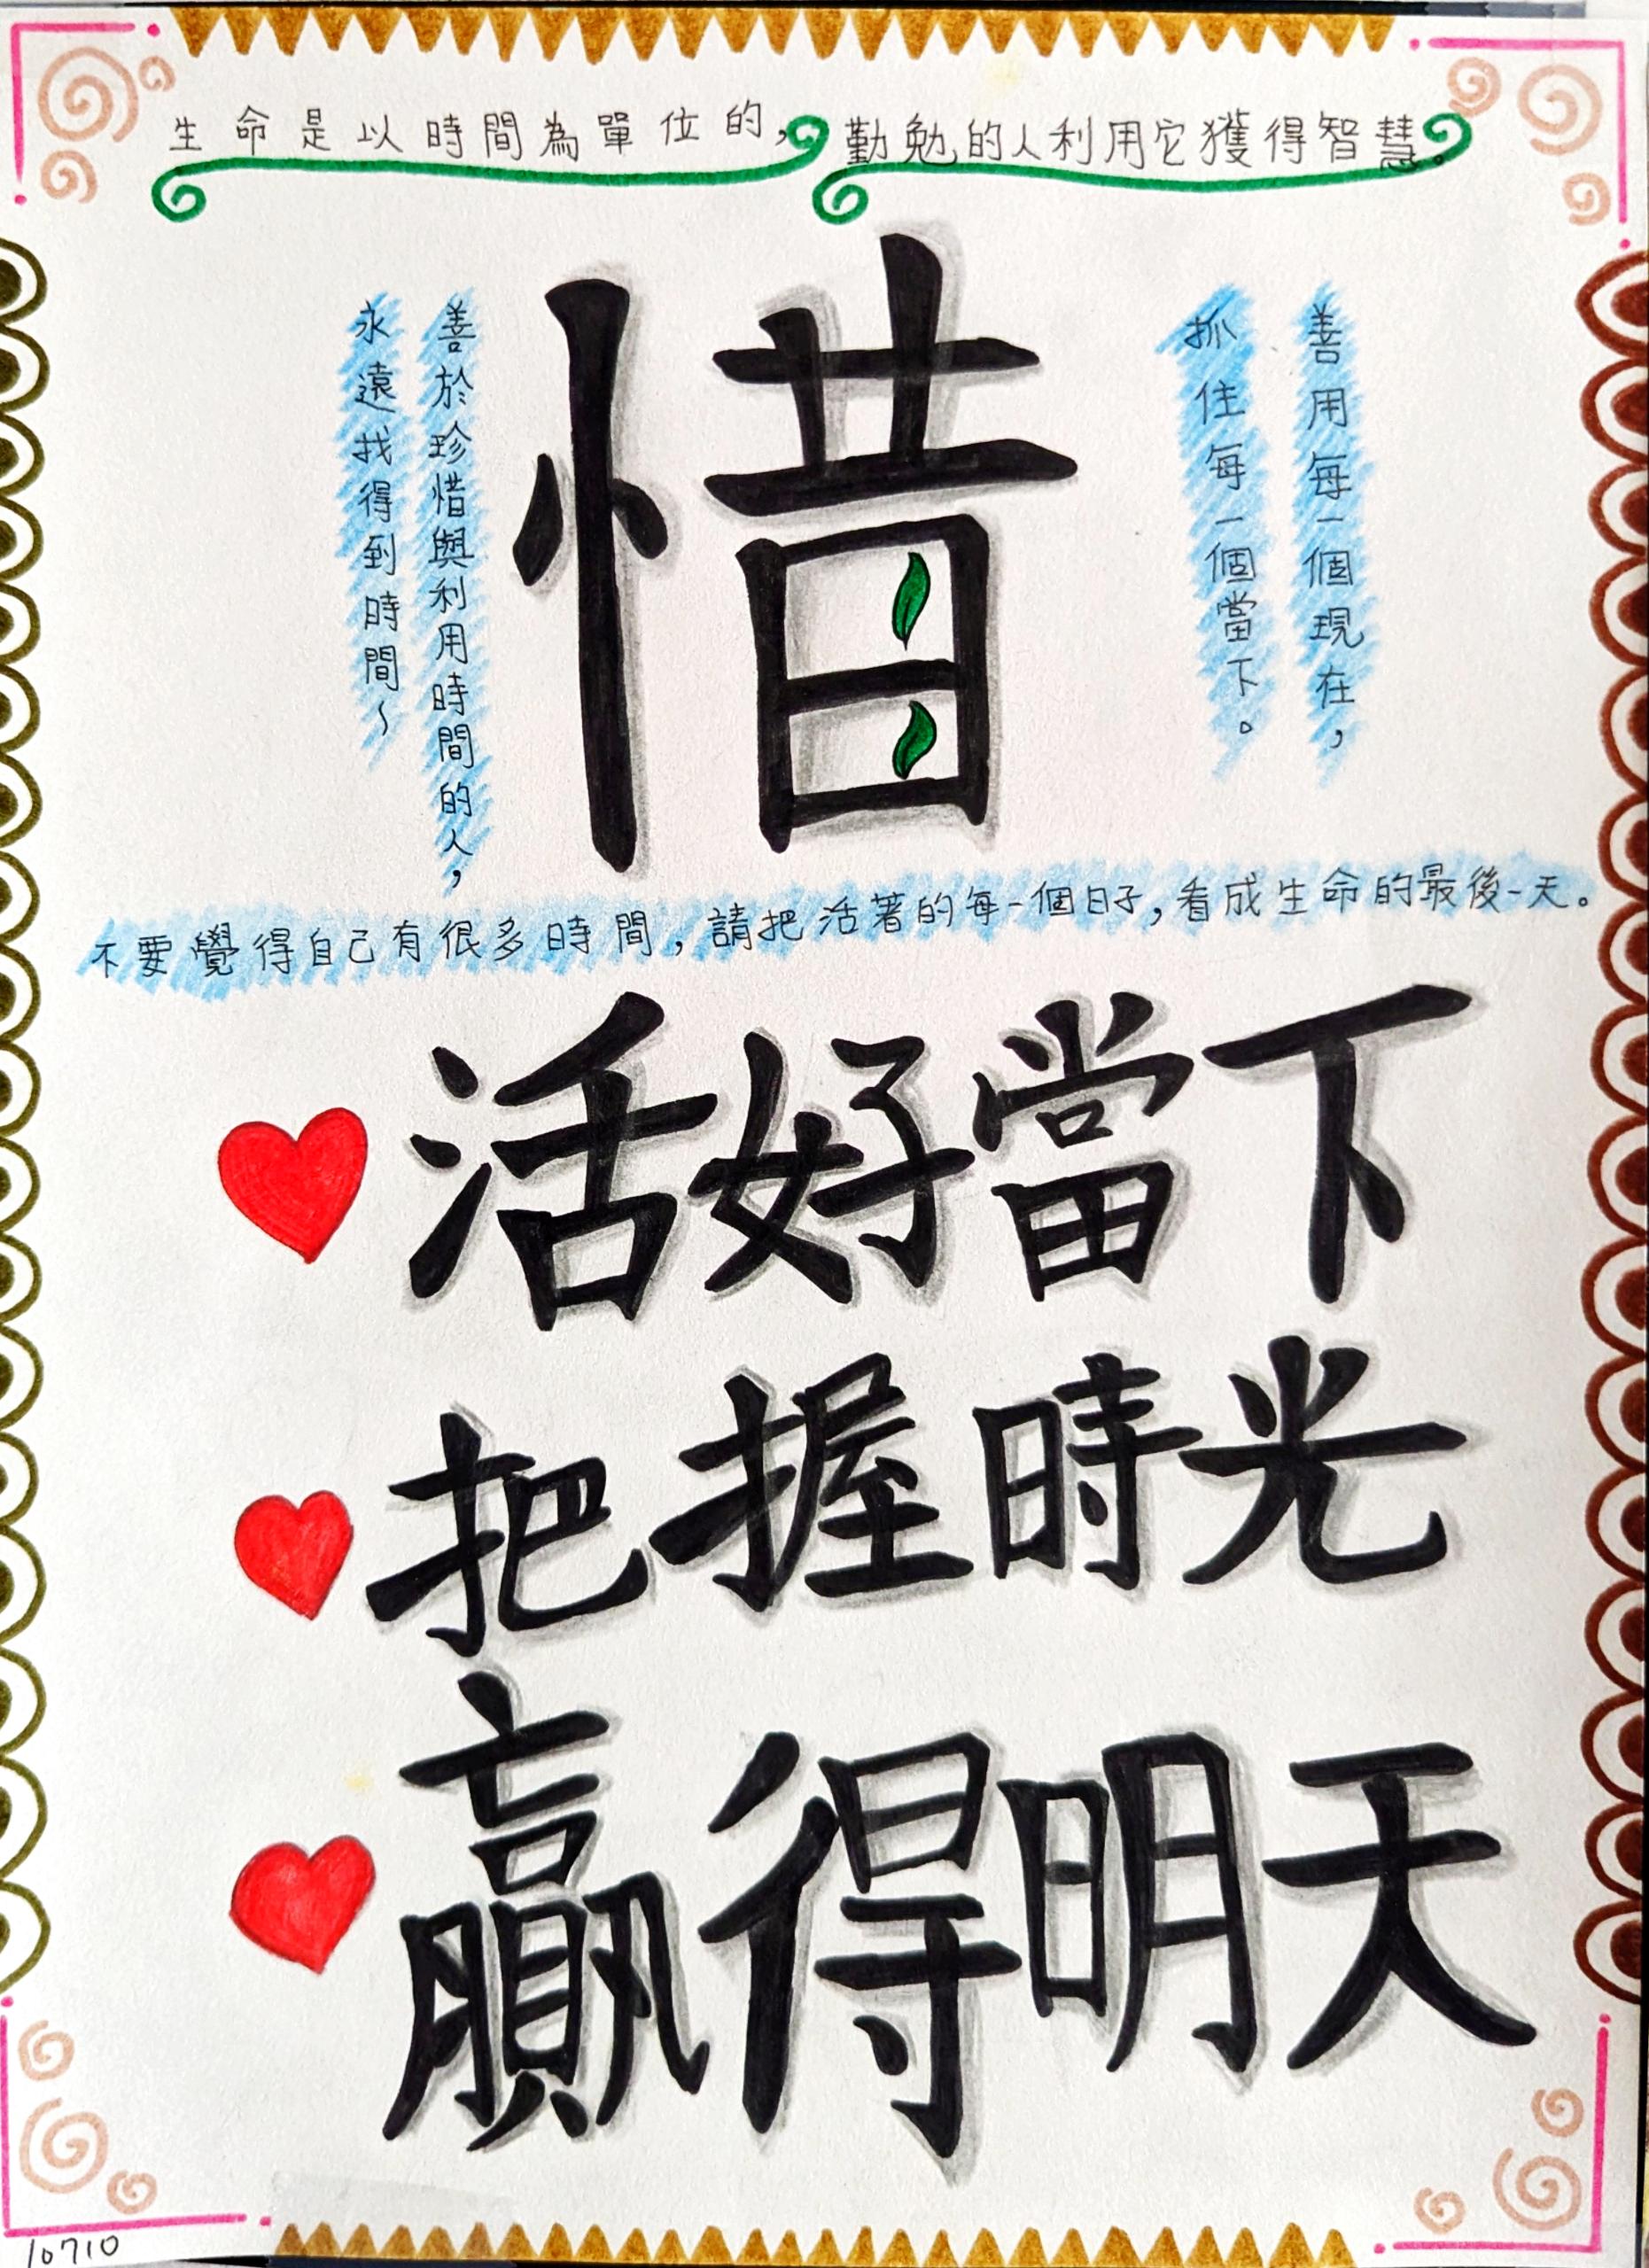 生命是以時間為單位的，勤勉的人利用它獲得智慧。
惜
善用每一個現在，
抓住每一個當下。
善於珍惜與利用時間的人，
永遠找得到時間～
不要覺得自己有很多時間，請把活著的每一個日子，看成生命的最後一天。
活好當下
把握時光
贏得明天
10710